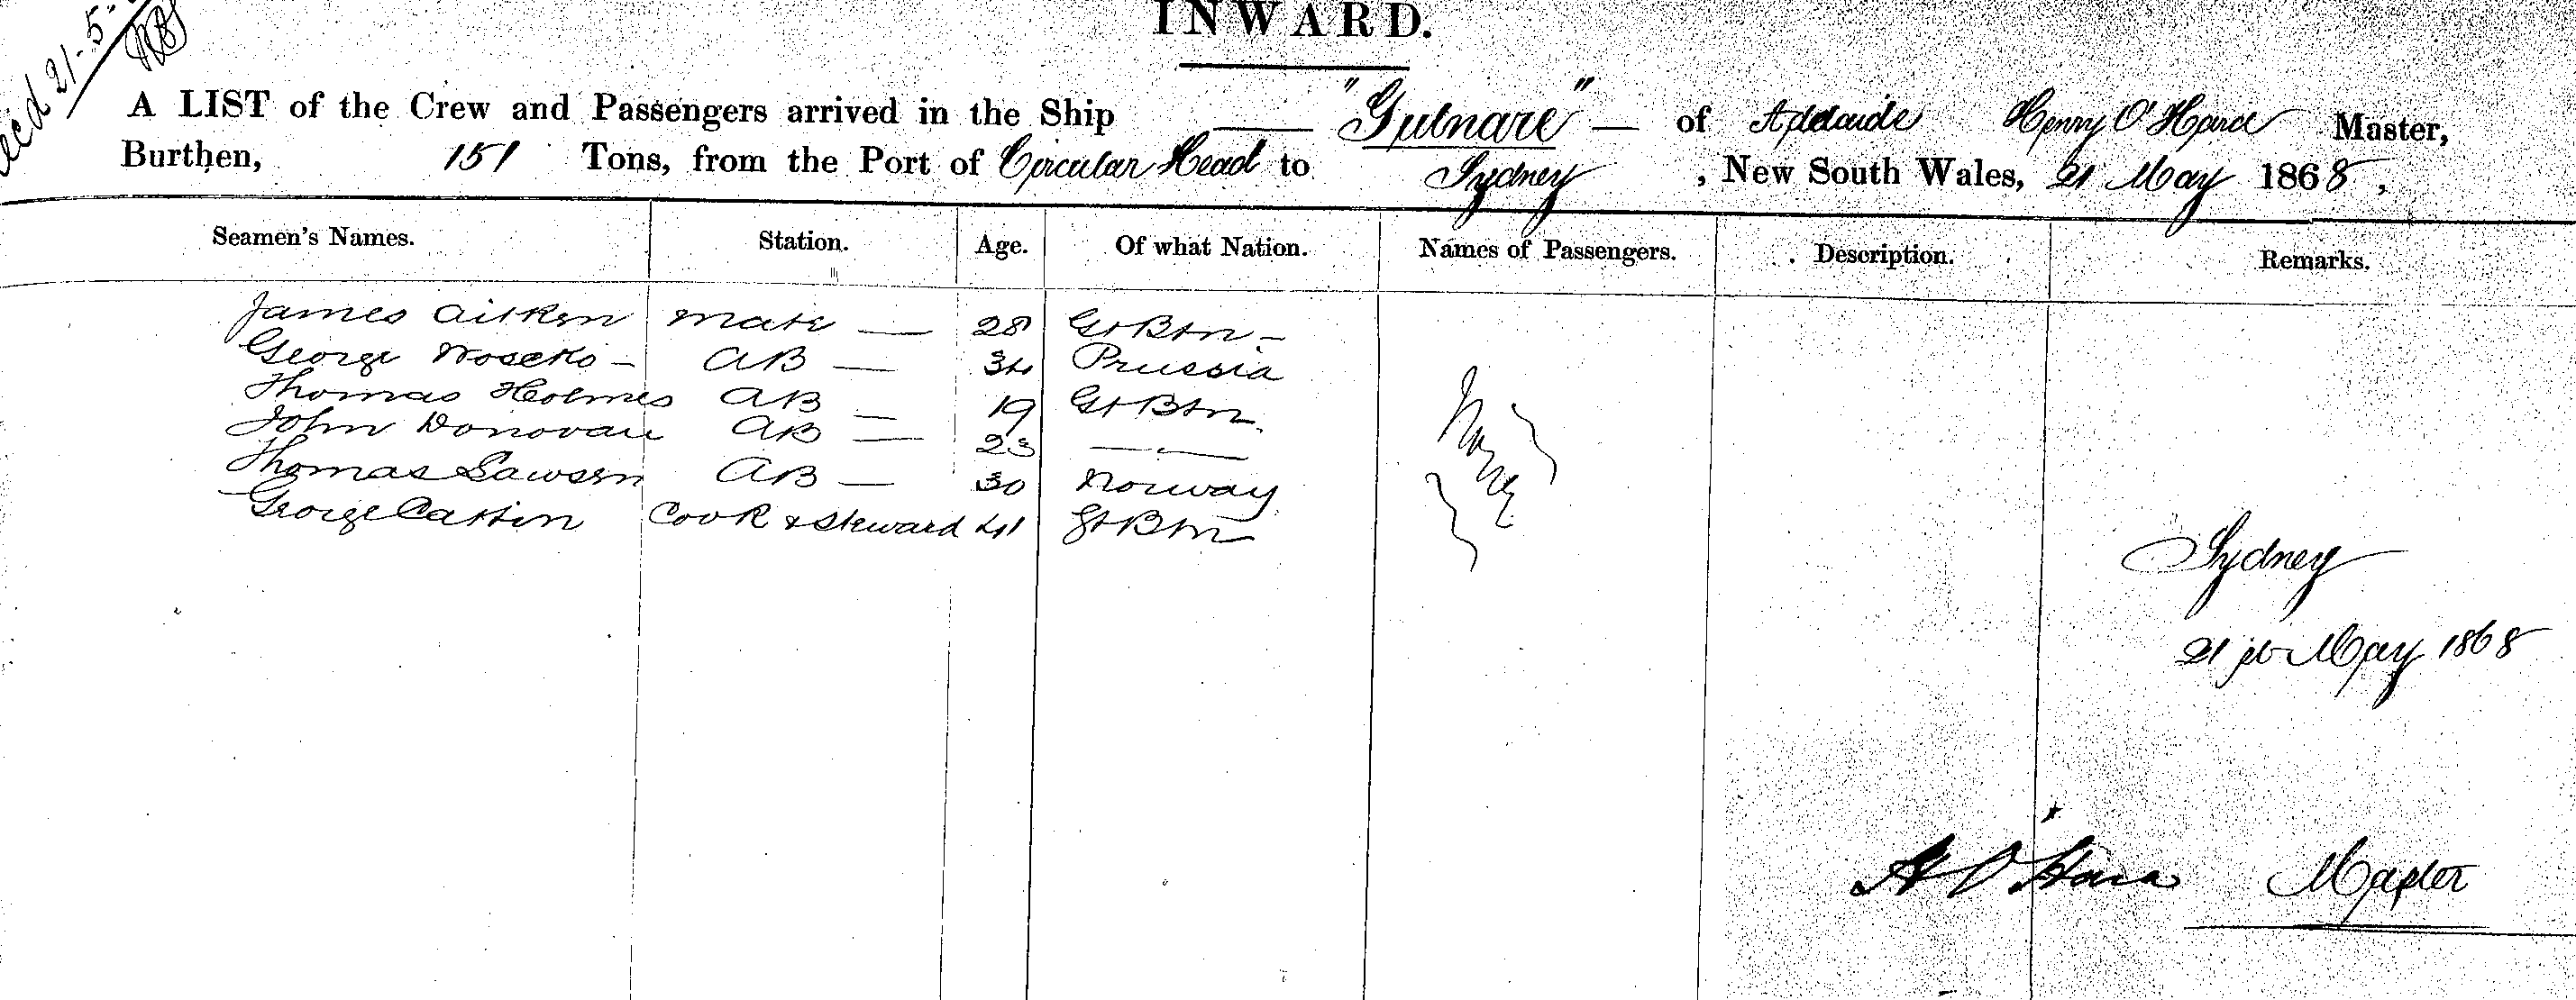 recd 21-5-
INWARD.
A LIST of the Crew and Passengers arrived in the Ship "Gulnare" of Adelaide Henry O'Hara Master,
Burthen, 151 Tons, from the Port of Circular Head to Sydney, New South Wales, 21 May 1868,
Seamen's Names. Station. Age. Of what Nation. Names of Passengers. Description. Remarks.
James Aitken Mate — 28 Gt Btn —
George — AB — 34 Prussia
Thomas Holmes AB — 19 Gt Btn
John Donovan AB — 23 — —
Thomas Lawson AB — 30 Norway
George Cook & Steward 41 Gt Btn
Sydney
21 May 1868
H O'Hara Master